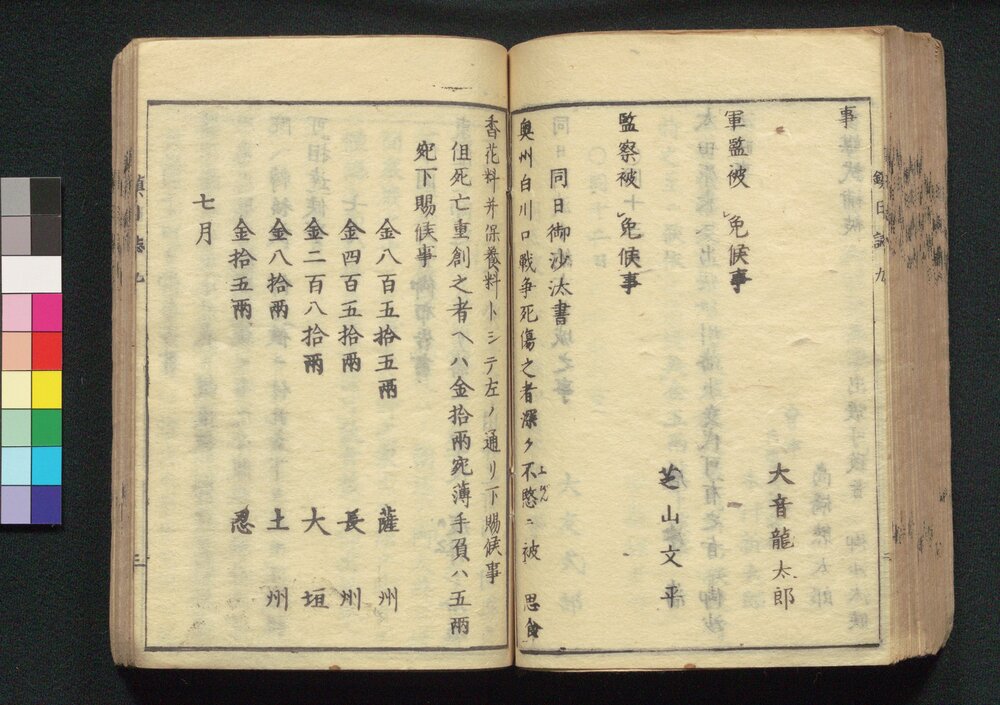 事
大音龍太郎
軍監被 免候事
芝山文平
監察被 免候事
同日御沙汰書
奥州白川口戦争死傷之者深ク不愍ニ被 思食
香花料并保養料トシテ左ノ通リ下賜候事
但死亡重創之者ヘハ金拾兩宛薄手負ハ五兩
宛下賜候事
金八百五拾五兩 薩州
金四百五拾兩 長州
金二百八拾兩 大垣
金八拾兩 土州
金拾五兩 忍
七月